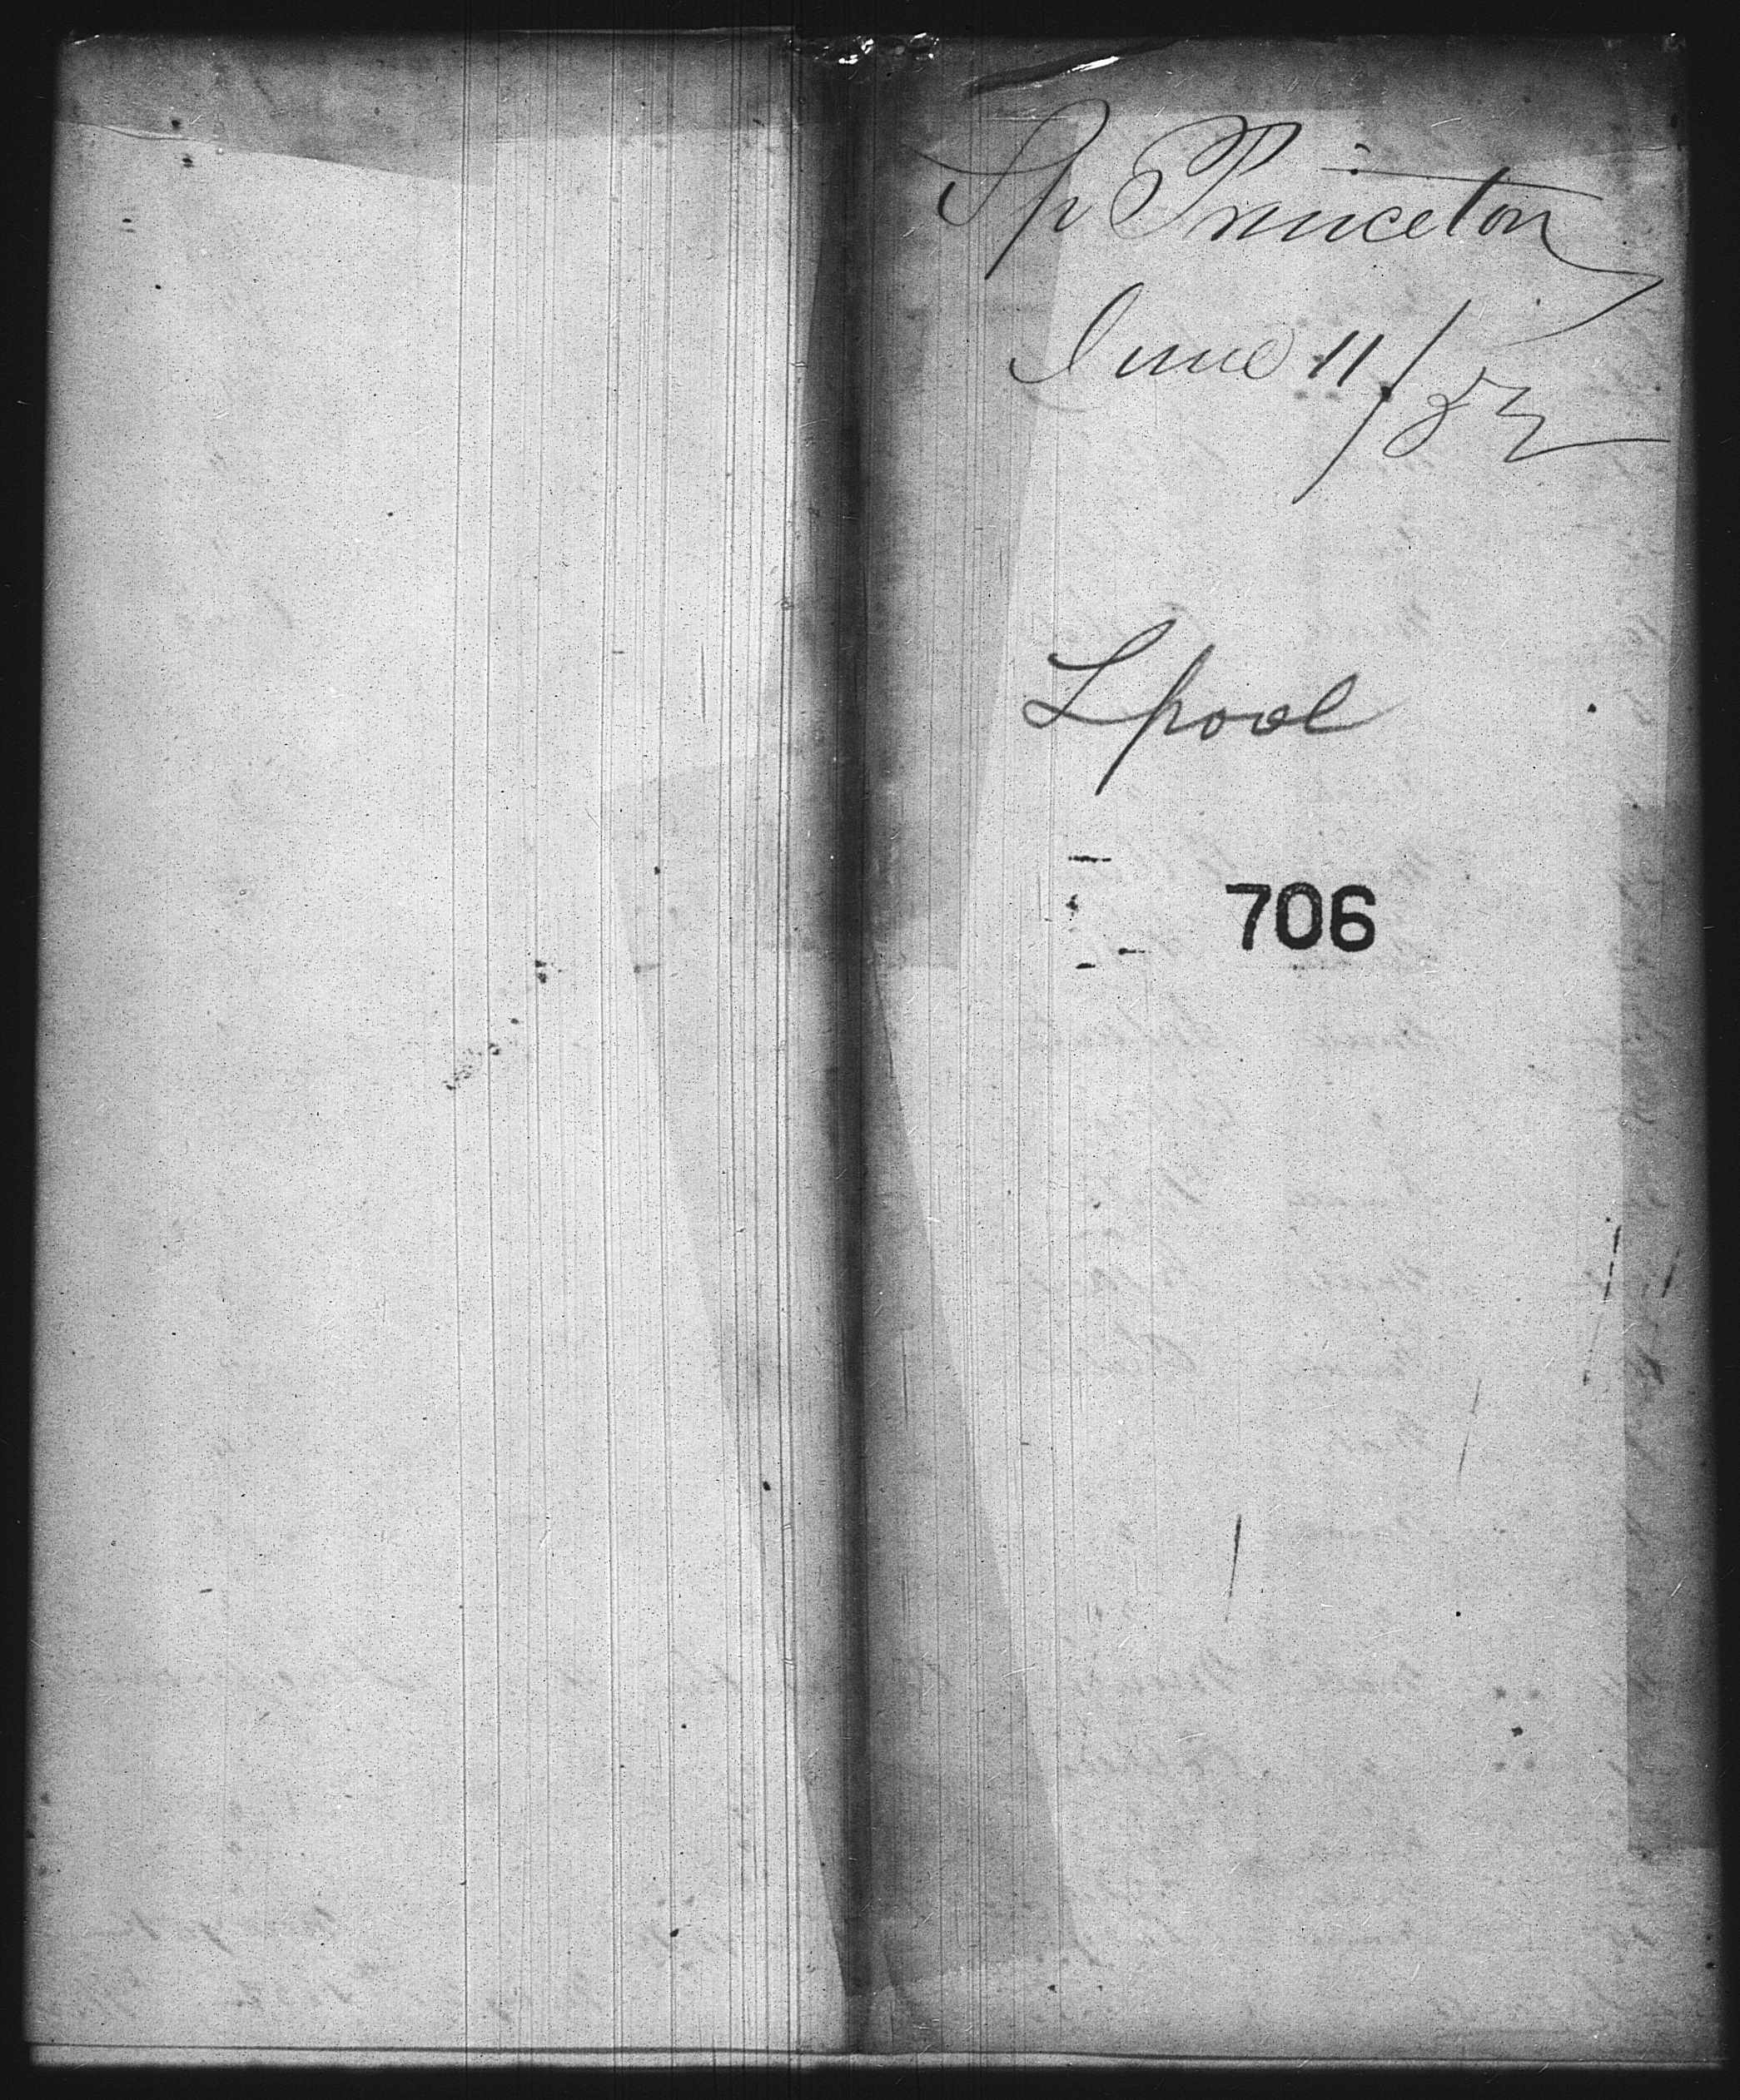 Sp Princeton
June 11/52
Lpool
706